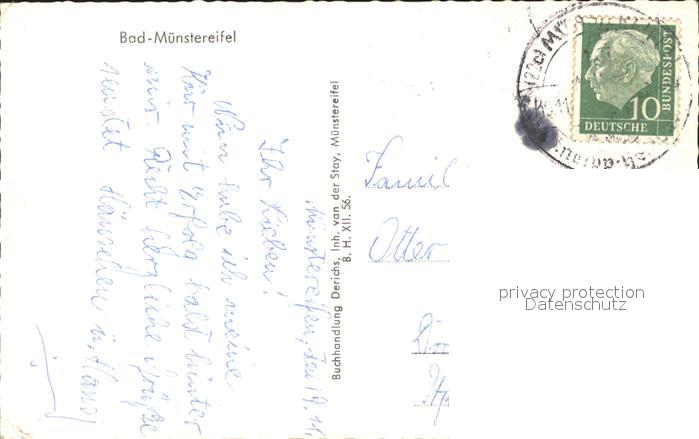 Bad-Münstereifel
Münstereifel, den 19. 11.
Ihr Lieben!
Nun habe ich meine
Kur mit Erfolg bald hinter
mir. Recht herzliche Grüße
sendet Hänschen u. Hans
Buchhandlung Derichs, Inh. van der Stay, Münstereifel
B. H. XII. 56.
Famil
Otter
10
DEUTSCHE
BUNDESPOST
privacy protection
Datenschutz